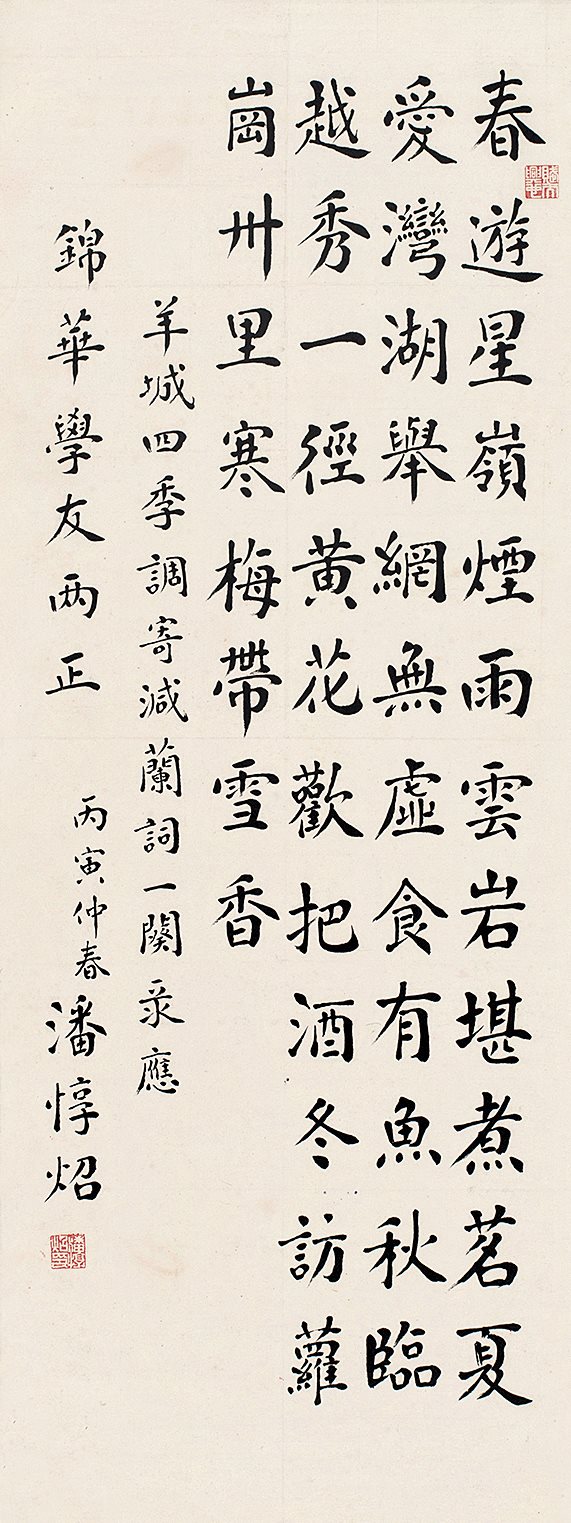 春遊星嶺煙雨雲岩堪煮茗夏
愛灣湖舉網無虛食有魚秋臨
越秀一徑黃花歡把酒冬訪蘿
崗卅里寒梅帶雪香
羊城四季調寄減蘭詞一闋录應
錦華學友兩正
丙寅仲春潘惇炤